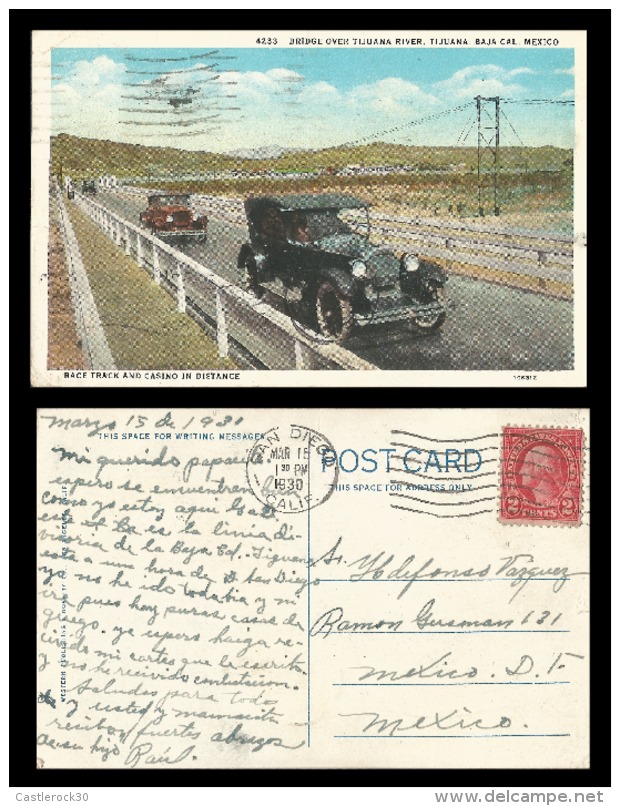 4233 BRIDGE OVER TIJUANA RIVER, TIJUANA, BAJA CAL. MEXICO
RACE TRACK AND CASINO IN DISTANCE
marzo 15 de 1930
THIS SPACE FOR WRITING MESSAGES
Mi querido papacito
espero se encuentren bien
como yo estoy aqui
es la linia di-
visoria de la Baja Cal. Tijuana
esta a una hora de San Diego
yo no he ido todavia y ni
ire pues hay puras casas de
juego. ya espero haiga re-
civido mi cartas que le escrito
y no he recivido contestacion.
Saludes para todos
y usted y mamacita
reciban fuertes abrazos
de su hijo Raúl.
SAN DIEGO
MAR 15
1 30 PM
1930
CALIF.
POST CARD
THIS SPACE FOR ADDRESS ONLY
2 CENTS 2
Sr. Yldefonso Vazquez
Ramon Gusman 131
Mexico. D. F.
Mexico.
Castlerock30
delcampe.net